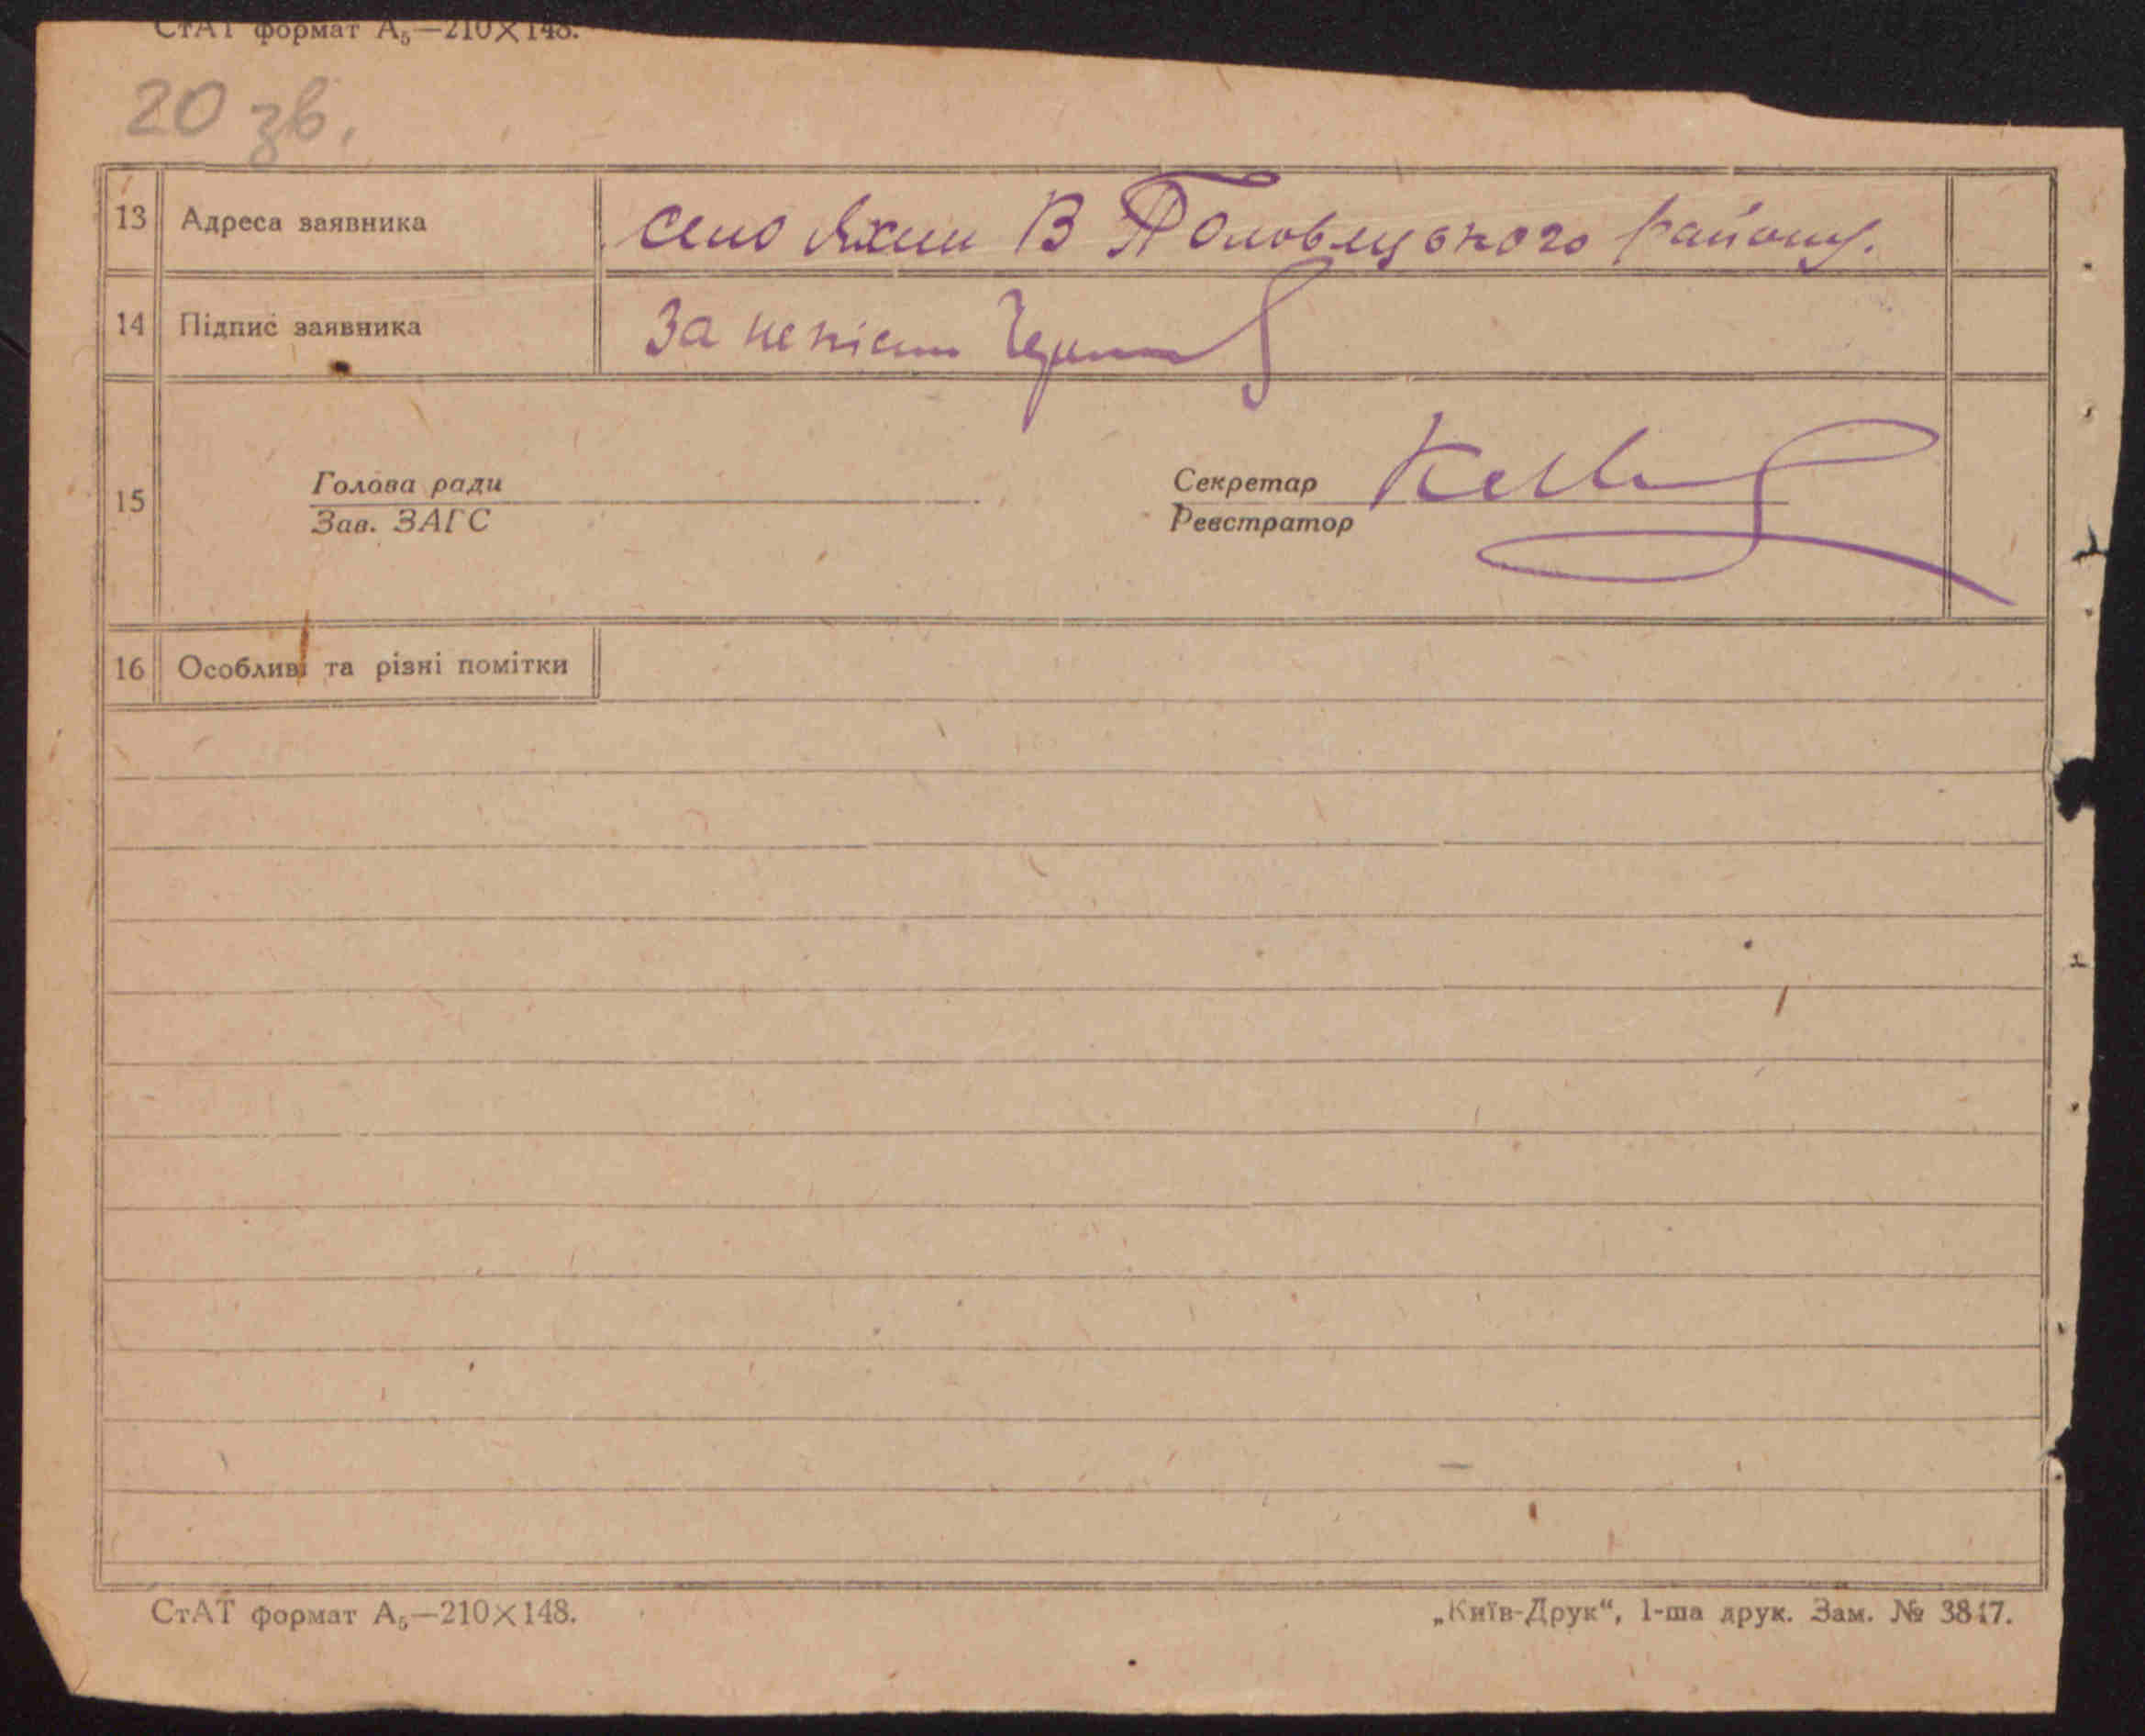 СтАТ формат А₅—210×148.
20 зв.
13 Адреса заявника село Яхни В Половецького району.
14 Підпис заявника За непісьм
15 Голова ради Секретар
Зав. ЗАГС Реєстратор
16 Особливі та різні помітки
СтАТ формат А₅—210×148. „Київ-Друк“, 1-ша друк. Зам. № 3847.